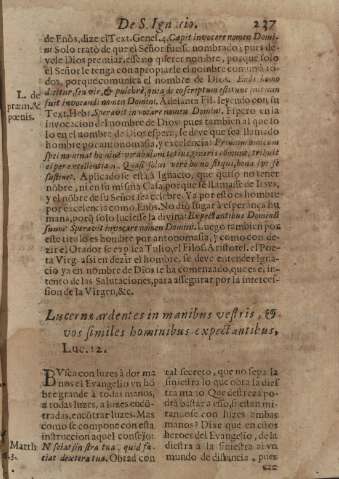 De S. Ignacio. 237
de Enòs, dize el Text. Genes. 4. Cœpit invocare nomen Domi-
ni Solo trató de que el Señor fuesse nombrado; pues de-
vele Dios premiar, esse no querer nombre, porque solo
el Señor le tenga con apropiarle el nombre comun à to-
dos, porque comunica el nombre de Dios.
sunt invocandi nomen Domini. Adelanta Fil. leyendo con su
L. de
præm. &
pœnis.
Text. Hebr. Speravit invocare nomen Domini. Espero en la
invocacion del nombre de Dios: pues tambien al que so-
lo en el nombre de Dios espera, se deve que sea llamado
hombre por antonomasia, y excelencia:
spei
sustinet. Aplicado se està à Ignacio, que quiso no tener
nõbre, ni en su misma Casa, porque se llamasse de Iesvs,
y el nõbre de su Señor sea celebre. Ya por esso es hombre
por excelencia como Enòs. No diò lugar à esperança hu
mana, porq̃ solo luciesse la divina: Expectantibus Domini
suum: Speravit invocare nomen Domini. Luego tambien por
este titulo es hombre por antonomasia, y como con de-
zir el Orador se expuxa Tulio, el Filos. Aristotel. el Poe-
ta Virg. assi en dezir el hombre, se deve entender Igna-
cio ya en nombre de Dios te ha començado, que es el in-
tento de las Salutaciones, para assegurar por la interces-
sion de la Virgen, &c.
Lucernæ ardentes in manibus vestris, &
vos similes hominibus expectantibus,
Luc. 12.
BVsca con luzes à dor ma
nos el Evangelio vn hõ
bre grande à todas manos,
à todas luzes, à luzes encõ-
tradas, encontrar luzes. Mas
como se compone con esta
instruccion aquel consejo:
Matth.
Nesciat sinistra tua, quid fa-
ciat dextera tua. Obrad con
tal secreto, que no sepa la
siniestra lo que obra la dies-
tra mano Que destreza po-
drà bastar a esso, si estan mi-
randose con luzes ambas
manos? Dize que en estos
heroes del Evangelio, de la
diestra à la siniestra ai vn
mundo de distancia, pues